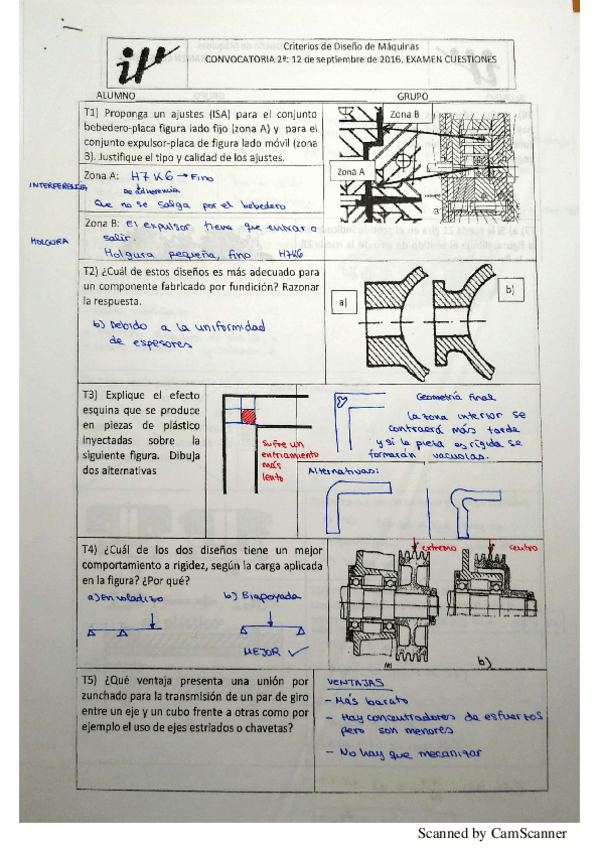 Criterios de Diseño de Máquinas
CONVOCATORIA 2ª: 12 de septiembre de 2016. EXAMEN CUESTIONES
ALUMNO GRUPO
T1) Proponga un ajustes (ISA) para el conjunto
bebedero-placa figura lado fijo (zona A) y para el
conjunto expulsor-placa de figura lado móvil (zona
3). Justifique el tipo y calidad de los ajustes.
Zona B
Zona A
INTERFERENCIA
Zona A: H7 K6 → Fino
De adherencia
Que no se salga por el bebedero
HOLGURA
Zona B: El expulsor tiene que entrar o
salir.
Holgura pequeña, fino H7K6
T2) ¿Cuál de estos diseños es más adecuado para
un componente fabricado por fundición? Razonar
la respuesta.
b) Debido a la uniformidad
de espesores
a)
b)
T3) Explique el efecto
esquina que se produce
en piezas de plástico
inyectadas sobre la
siguiente figura. Dibuja
dos alternativas
Sufre un
enfriamiento
más
lento
Geometría final
La zona interior se
contraerá más tarde
y si la pieza es rígida se
formarán vacuolas.
Alternativas:
T4) ¿Cuál de los dos diseños tiene un mejor
comportamiento a rigidez, según la carga aplicada
en la figura? ¿Por qué?
a) En voladizo b) Biapoyada
MEJOR ✓
extremo
centro
b)
T5) ¿Qué ventaja presenta una unión por
zunchado para la transmisión de un par de giro
entre un eje y un cubo frente a otras como por
ejemplo el uso de ejes estriados o chavetas?
VENTAJAS
- Más barato
- Hay concentradores de esfuerzos
pero son menores
- No hay que mecanizar
Scanned by CamScanner